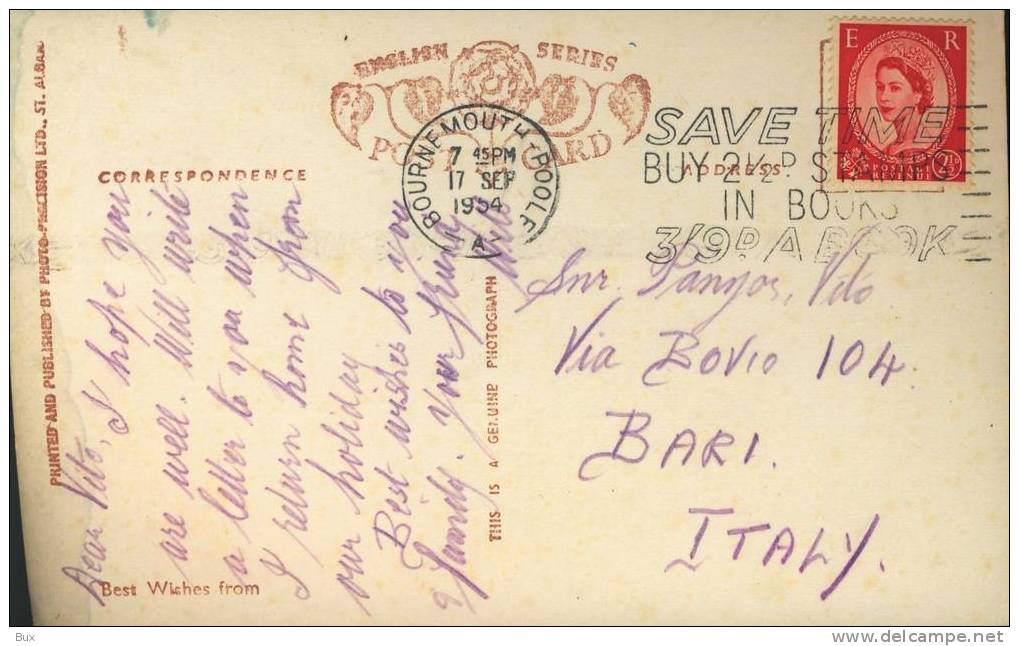 ENGLISH SERIES
POST CARD
CORRESPONDENCE
ADDRESS
E R
POSTAGE
REVENUE
2½D
BOURNEMOUTH-POOLE
7 45PM
17 SEP
1954
A
SAVE TIME
BUY 2½D STAMPS
IN BOOKS
3/9D A BOOK
PRINTED AND PUBLISHED BY PHOTO-PRECISION LTD., ST. ALBANS
Dear Vito, I hope you
are well. Will write
a letter to you when
I return home from
our holiday
Best wishes to you
& family. Your friend
Best Wishes from
THIS IS A GENUINE PHOTOGRAPH
Snr. Vito
Via Bovio 104.
BARI.
ITALY.
Bux
delcampe.net